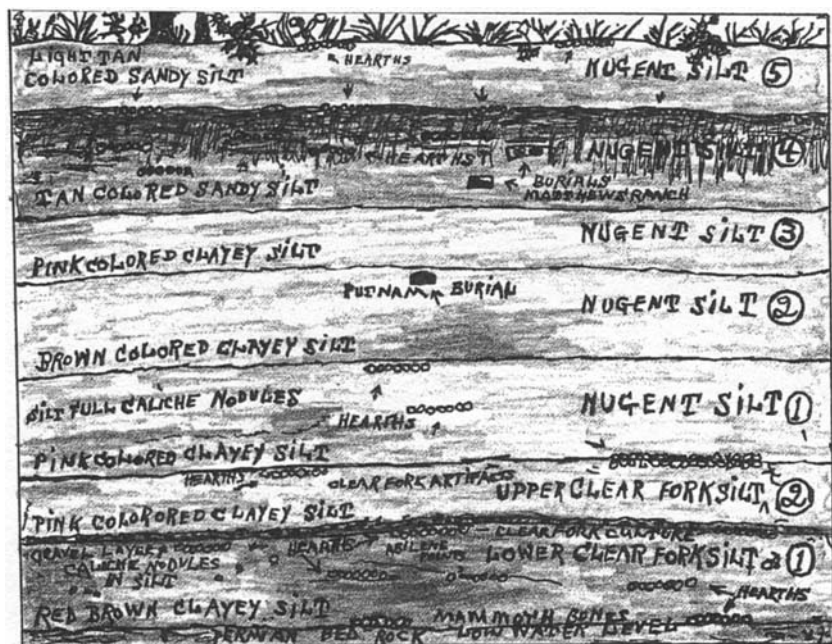 LIGHT TAN
COLORED SANDY SILT
HEARTHS
NUGENT SILT 5
HEARTHS
NUGENT SILT 4
TAN COLORED SANDY SILT
BURIALS
MATTHEWS RANCH
NUGENT SILT 3
PINK COLORED CLAYEY SILT
PUTNAM BURIAL
NUGENT SILT 2
BROWN COLORED CLAYEY SILT
SILT FULL CALICHE NODULES
HEARTHS
NUGENT SILT 1
PINK COLORED CLAYEY SILT
HEARTHS
CLEAR FORK ARTIFACTS
UPPER CLEAR FORK SILT 2
PINK COLORORED CLAYEY SILT
CLEAR FORK CULTURE
GRAVEL LAYERS
CALICHE NODULES
IN SILT
HEARTHS
ABILENE
POINTS
LOWER CLEAR FORK SILT 1
HEARTHS
RED BROWN CLAYEY SILT
MAMMOTH BONES
PERMIAN BED ROCK
LOW WATER LEVEL